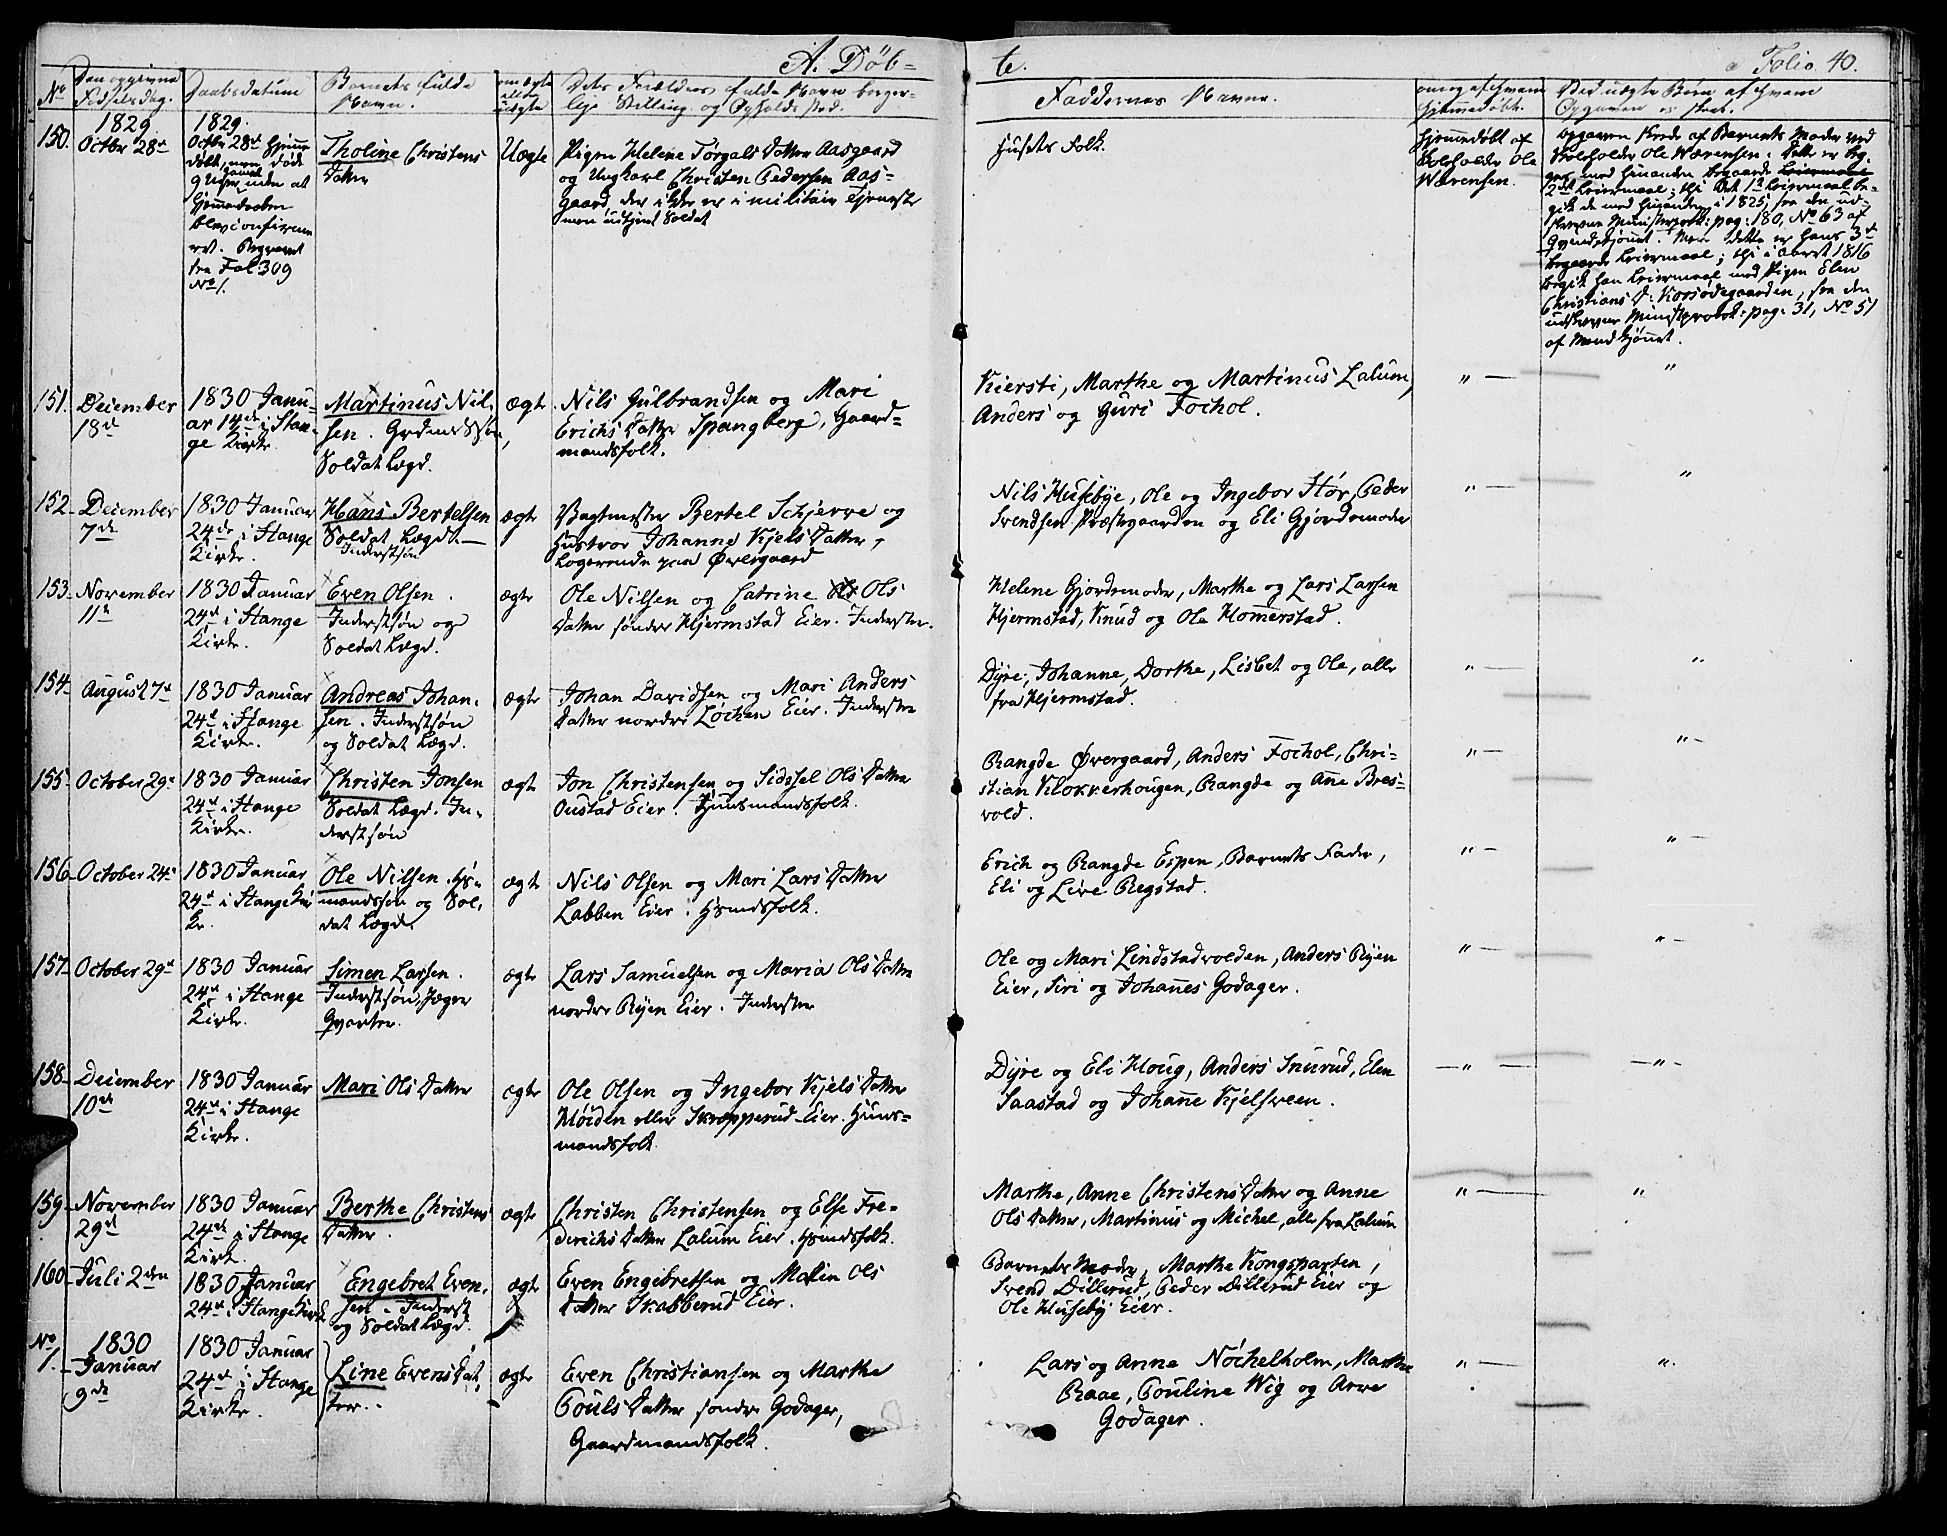 A. Døb=
te.
Folio. 40.
No
Den opgivne
Fødselsdag.
Daabsdatum
Barnets fulde
Navn.
om ægte
eller
uægte
Dets Forældres fulde Navn borger-
lige Stilling og Opholdssted.
Faddernes Navne.
om og af hvem
hjemmedøbt.
Ved uægte Børn af hvem
Opgaven er skeet.
150.
1829
Octbr 28de
1829.
Octbr 28de hjemme
døbt, men døde
9 Uger gammel uden at
hjemmedaaben
blev confirme
ret. Begravet
fra Fol: 309
No 1.
Tholine Christens
Datter
Uægte
Pigen Helene Torgals Datter Aasgaard
og Ungkarl Christen Pedersen Aas-
gaard, der ikke er i militair Tjeneste
men udtjent Soldat
Husets Folk.
hjemmedøbt af
Ole
Værensen.
Opgaven skede af Barnets Moder ved
Ole Værensen. Dette er be-
ger med hinanden begaaede
2det Leiermaal; thi det 1te Leiermaal be-
gik de med hinanden i 1825, fra den ud-
skrevne Ministerprot: pag: 180, No 63 af
Qvindekjønnet. Men dette er hans 3de
begaaede Leiermaal; thi i aaret 1816
begik han Leiermaal med Pigen Elen
Christians D: Korsødegaarden, fra den
udskrevne Ministprotok: pag: 31, No 51
af Mandkjønnet.
151.
December
18de
1830 Janu-
ar 14de i Stan-
ge Kirke.
Martinus Nil-
sen. Grdmdssøn,
Soldat Lægd.
ægte
Nils Gulbrandsen og Mari
Erichs Datter Spangberg, Gaard-
mandsfolk.
Kiersti, Marthe og Martinus Lalum,
Anders og Guri Fochol.
" —
"
152.
December
7de
1830 Januar
24de i Stange
Kirke.
Hans Bertelsen
Soldat Lægd. —
Inderstsøn
ægte
Vagtmester Bertel Schjerve og
Hustroe Johanne Kjels Datter,
Logerende paa Øvergaard
Nils Husebye, Ole og Ingebor Stor, Peder
Svendsen Præstegaarden og Eli Gjordemoder
" —
"
153.
November
11te
1830 Januar
24de i Stange
Kirke.
Even Olsen.
Inderstsøn og
Soldat Lægd.
ægte
Ole Nilsen og Catrine Ols
Datter søndre Hjermstad Eier. Inderster.
Helene Gjordemoder, Marthe og Lars Larsen
Hjermstad, Knud og Ole Homerstad.
154.
August 7de
1830 Januar
24de i Stange
Kirke.
Andreas Johan-
sen. Inderstsøn
og Soldat Lægd.
ægte
Johan Davidsen og Mari Anders
Datter nordre Løchen Eier. Inderster
Dyre, Johanne, Dorthe, Lisbet og Ole, alle
fra Hjermstad.
" —
"
155.
October 29de
1830 Januar
24de i Stange
Kirke.
Christen Jonsen
Soldat Lægd. In-
derstsøn
ægte
Jon Christensen og Sidsel Ols Datter
Oustad Eier. Huusmandsfolk.
Rangde Øvergaard, Anders Fochol, Chri-
stian Klokkerhougen, Rangde og Ane Bres-
vold.
" —
" -
156.
October 24de
1830 Januar
24de i Stange Kir
ke.
Ole Nilsen. Hs-
mandssøn og Sol-
dat Lægd.
ægte
Nils Olsen og Mari Lars Datter
Labben Eier. Hsmdsfolk.
Erich og Rangde Espen, Barnets Fader,
Eli og Live Regstad.
" —
" -
157.
October 29de
1830 Januar
24de i Stange
Kirke.
Simen Larsen.
Inderstsøn, Jæger
Qvarteer.
ægte
Lars Samuelsen og Maria Ols Datter
nordre Ryen Eier. Inderster
Ole og Mari Lindstadvolden, Anders Ryen
Eier, Siri og Johannes Godager.
" —
" -
158.
December
10de
1830 Januar
24de i Stange
Kirke.
Mari Ols Datter
ægte
Ole Olsen og Ingebor Kjels Datter
Moiden eller Skropperud-Eier. Huus-
mandsfolk
Dyre og Eli Houg, Anders Snurud, Elen
Saastad og Johanne Kjelsveen.
— " —
— " -
159.
November
29de
1830 Januar
24de i Stange
Kirke
Berthe Christens
Datter.
ægte
Christen Christensen og Else Fre-
derichs Datter Lalum Eier. Hsmdsfolk.
Marthe, Anne Christens Datter og Anne
Ols Datter, Martinus og Michel, alle fra Lalum
" —
"
160.
Juli 2den
1830 Januar
24de i Stange Kirke
Engebret Even-
sen. Inderst
og Soldat Lægd.
ægte
Even Engebretsen og Malin Ols
Datter Skabberud Eier.
Barnets Moder, Marthe Kongsparten,
Svend Dillerud, Peder Dillerud Eier og
Ole Huseby Eier.
No
1.
1830
Januar
9de
1830 Januar
24de i Stange
Kirke.
Line Evens Dat-
ter.
ægte
Even Christiansen og Marthe
Pouls Datter søndre Godager,
Gaardmandsfolk.
Lars og Anne Nöchelholm, Marthe
Raae, Pouline Wig og Arve
Godager.
" —
"